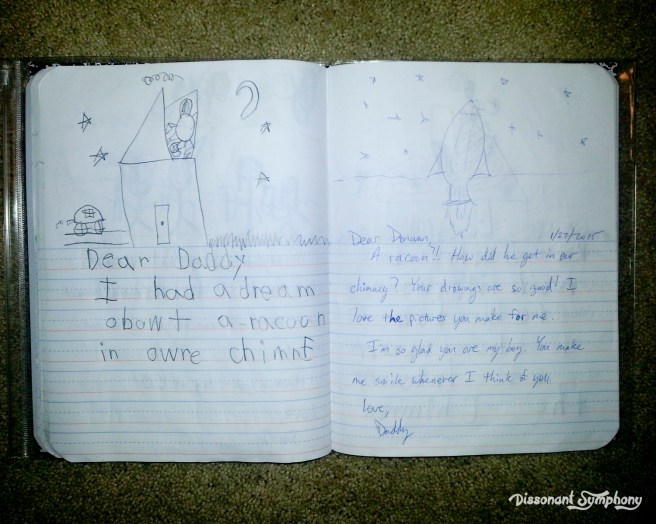 Dear Daddy
I had a dream
abowt a racoon
in owre chimnE
Dear Donovan,
1/27/2015
A racoon?! How did he get in our
chimney? Your drawings are so good! I
love the pictures you make for me.
I'm so glad you are my boy. You make
me smile whenever I think of you.
Love,
Daddy
Dissonant Symphony